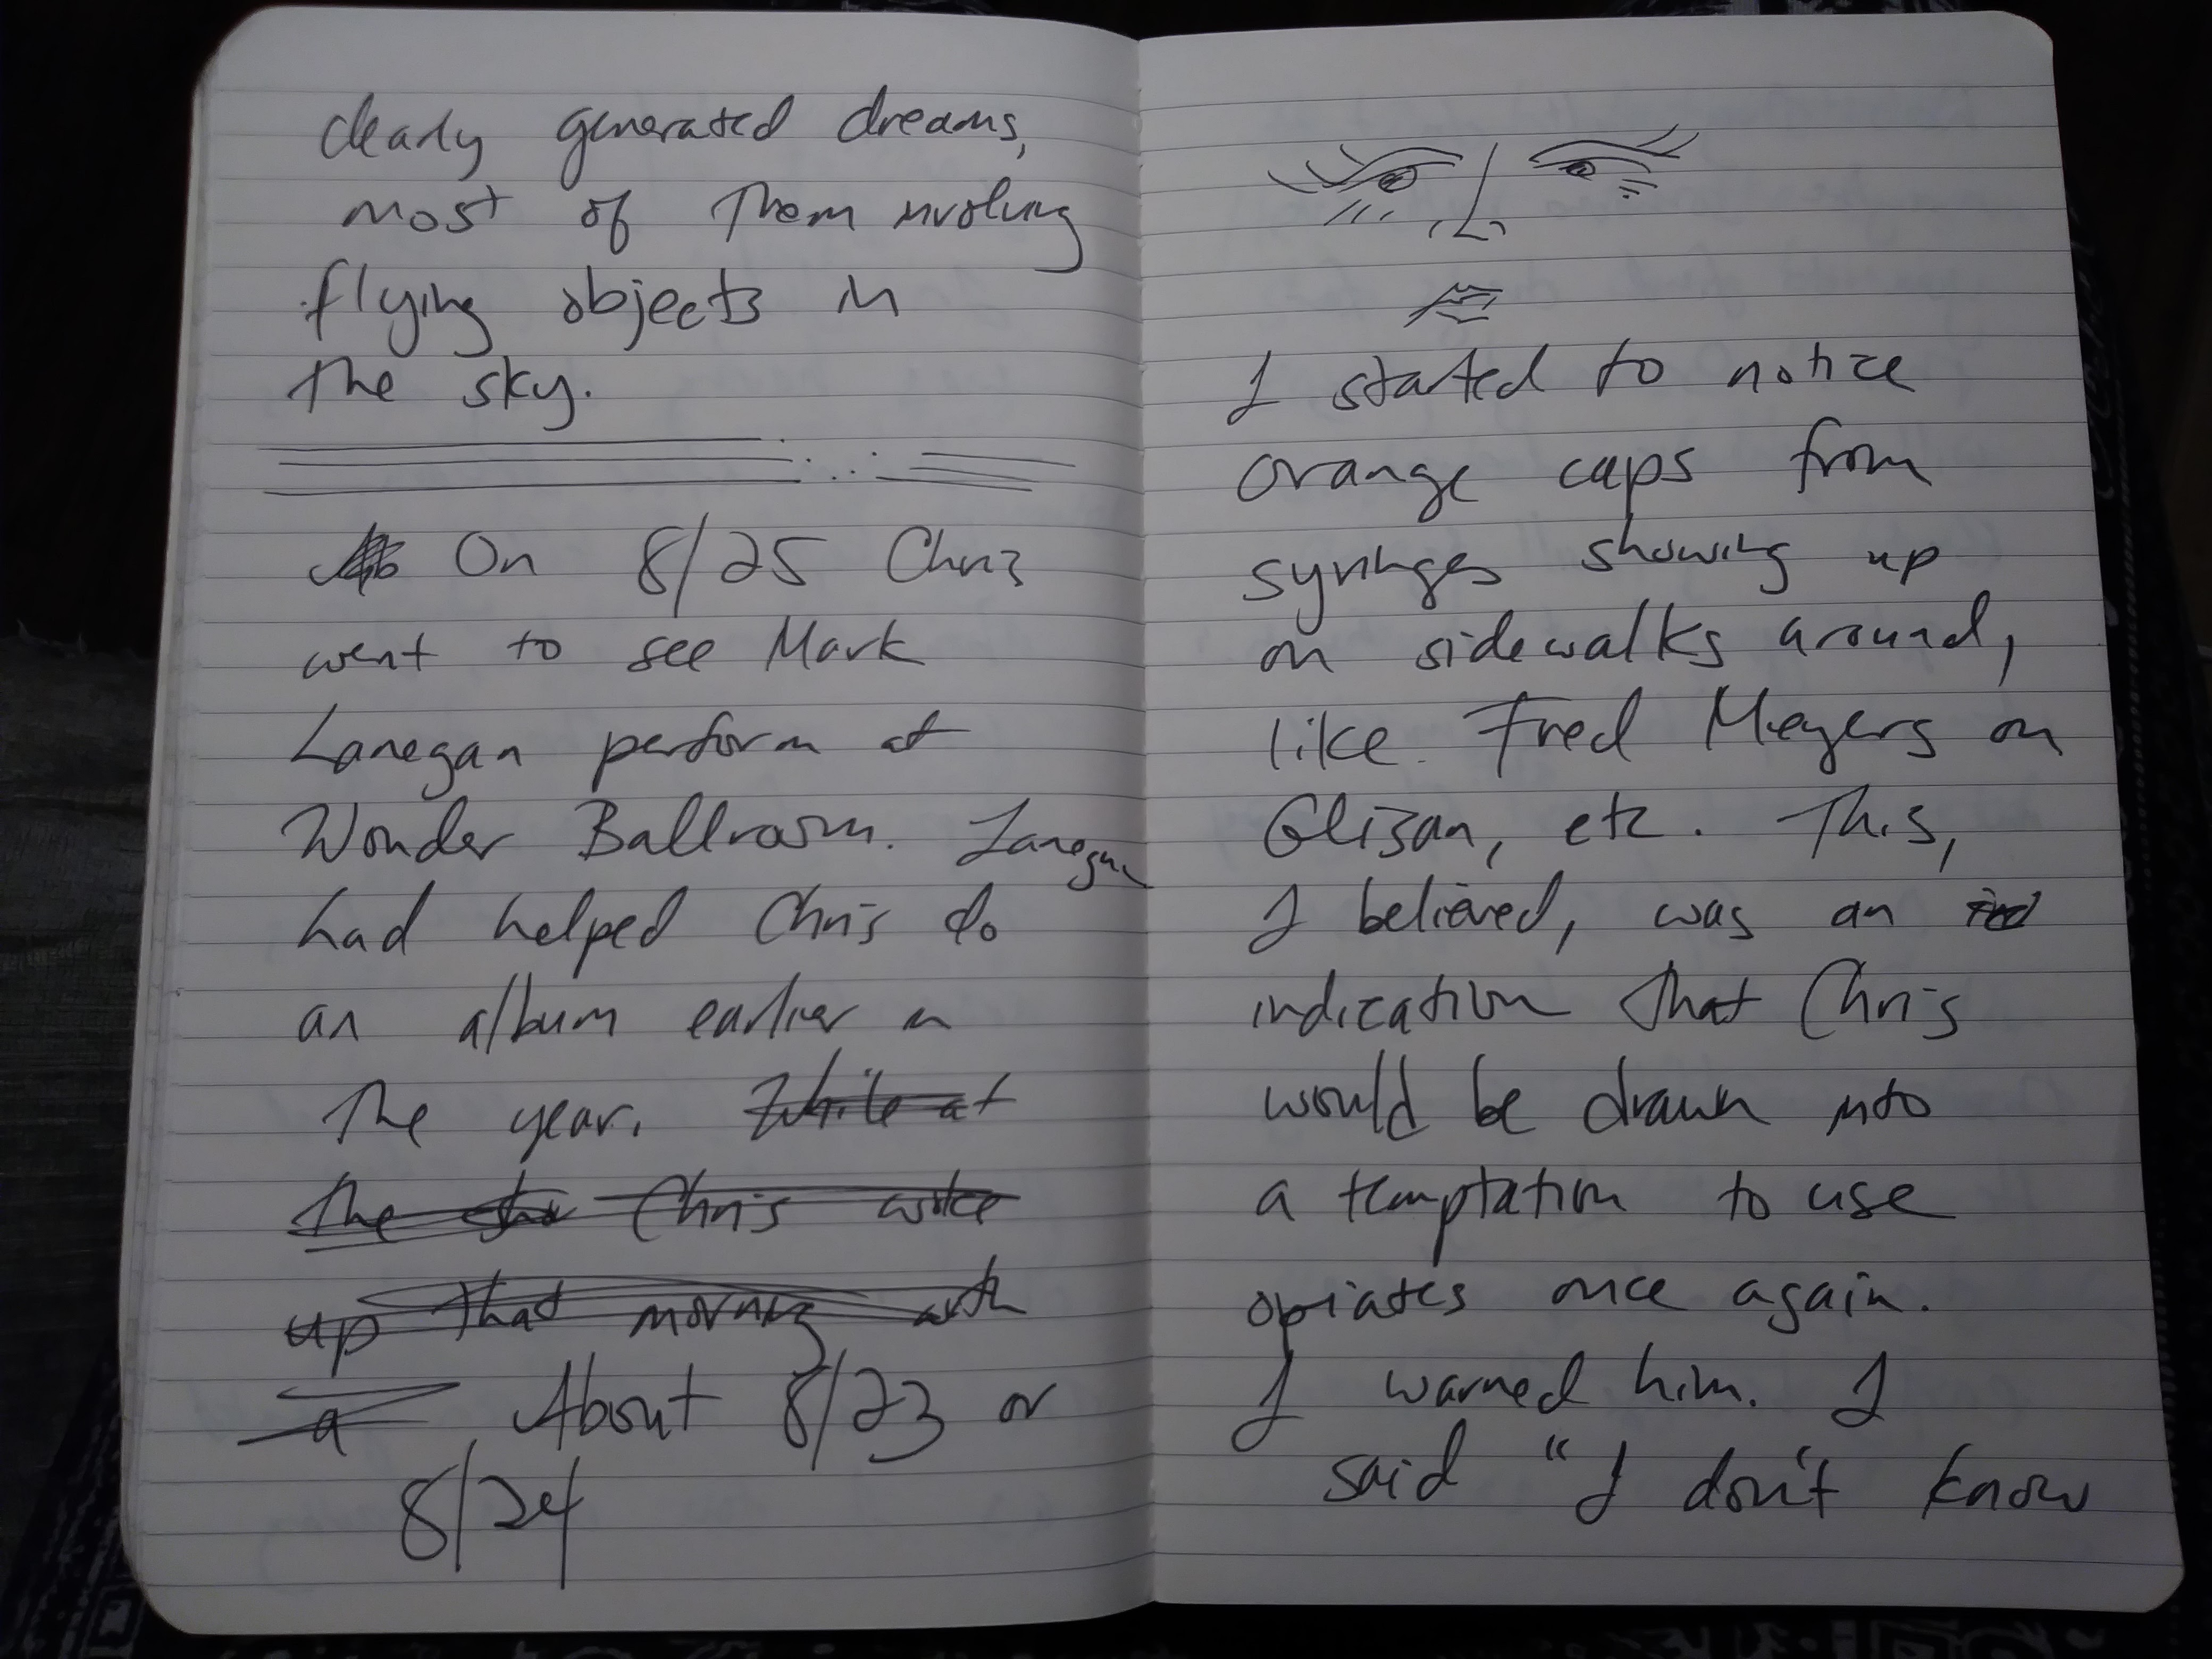 clearly generated dreams,
most of them involving
flying objects in
the sky.
On 8/25 Chris
went to see Mark
Lanegan perform at
Wonder Ballroom. Lanegan
had helped Chris do
an album earlier in
the year. While at
the Chris woke
up that morning with
a About 8/23 or
8/24
I started to notice
orange caps from
syringes showing up
on sidewalks around,
like Fred Meyers on
Glisan, etc. This,
I believed, was an
indication that Chris
would be drawn into
a temptation to use
opiates once again.
I warned him. I
said "I don't know